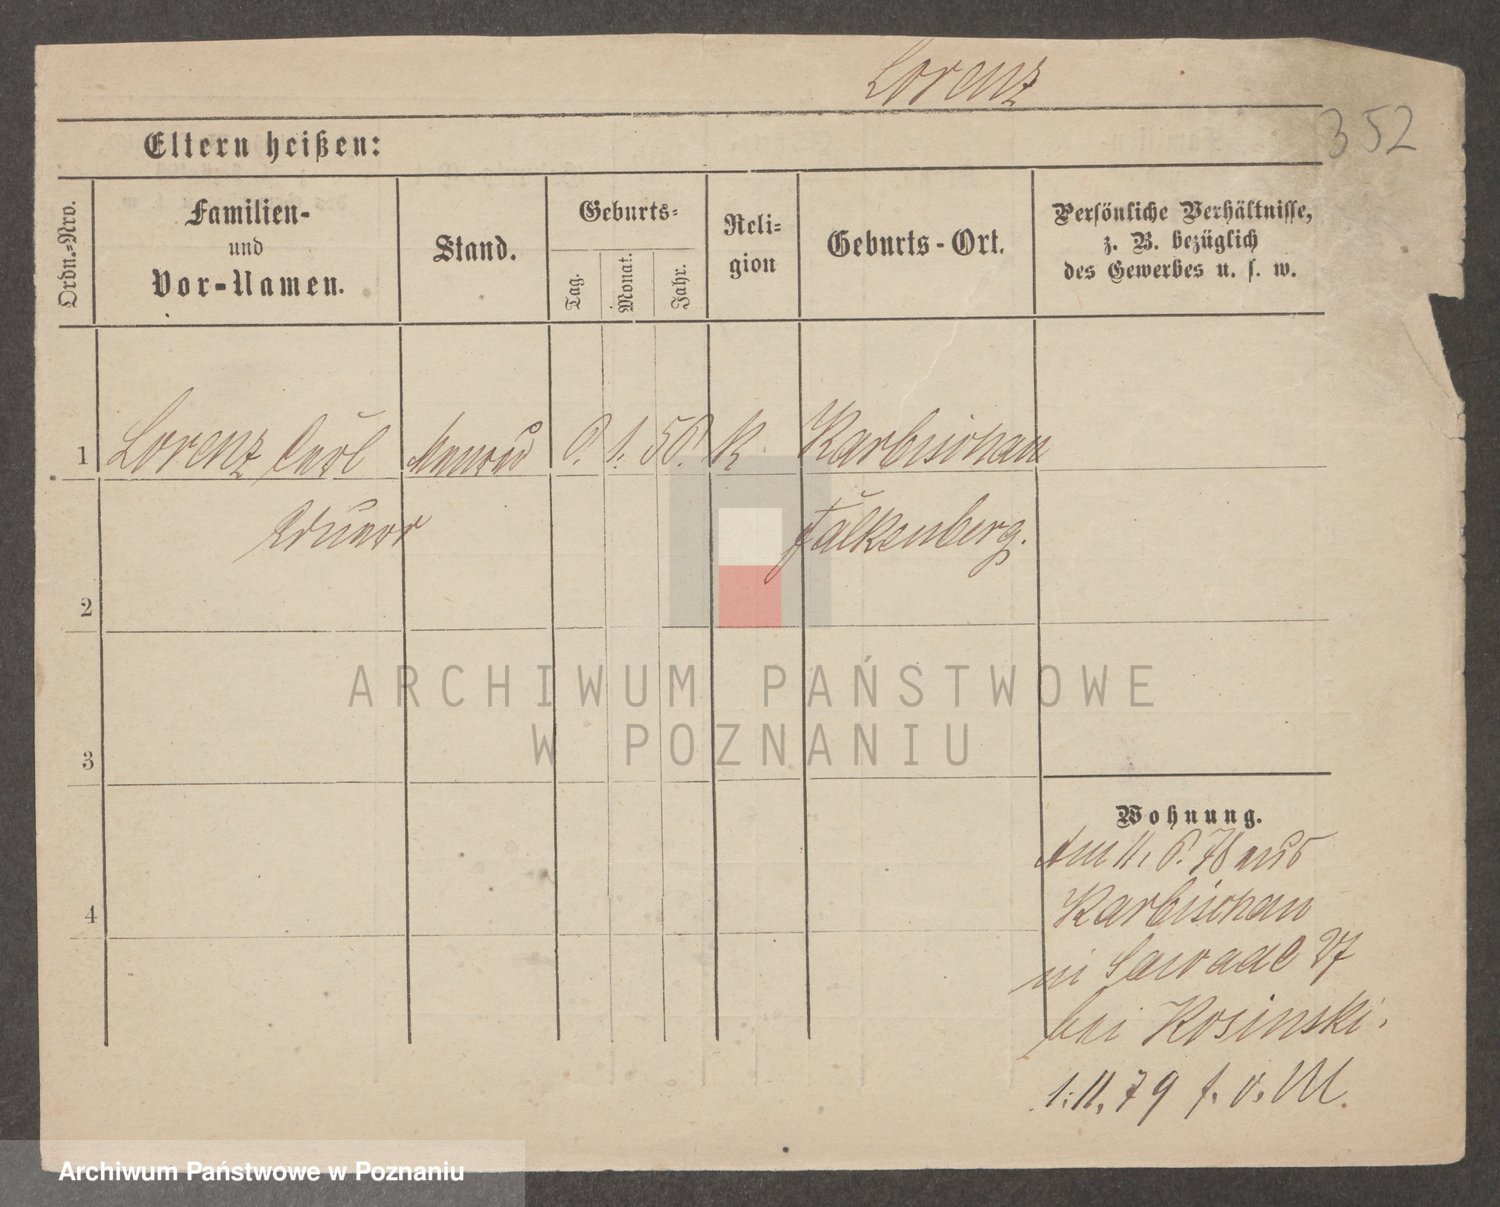 Lorenz
352
Eltern heißen:
Ordn.-Nro.
Familien-
und
Vor-Namen.
Stand.
Geburts-
Tag.
Monat.
Jahr.
Reli-
gion
Geburts-Ort.
Persönliche Verhältnisse,
z. B. bezüglich
des Gewerbes u. s. w.
1 Lorenz Carl 1. K. Karbischau
Eduard Falkenberg.
2
3
4
Wohnung.
Am 11. 6. 78 aus
Karbischau
in Sawade 27
bei Kosinski.
1.11.79 f. v. M.
ARCHIWUM PAŃSTWOWE
W POZNANIU
Archiwum Państwowe w Poznaniu